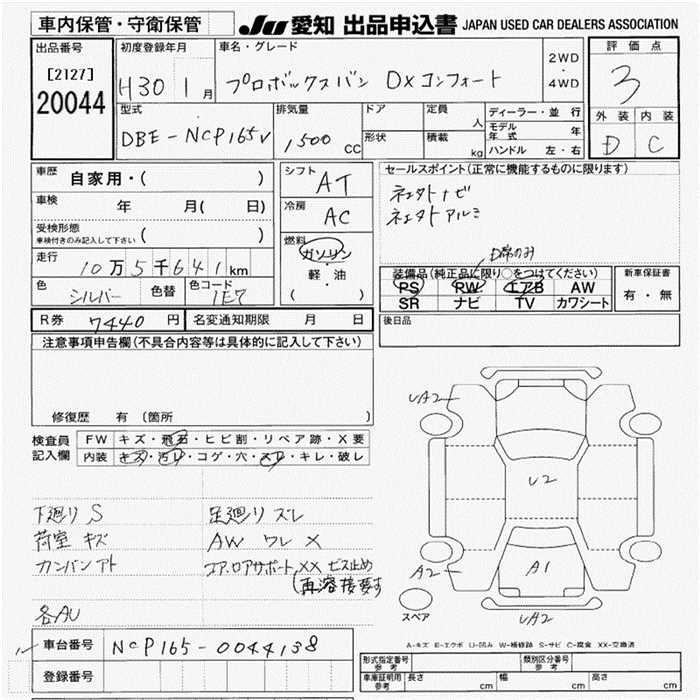 車内保管・守衛保管
JU 愛知 出品申込書 JAPAN USED CAR DEALERS ASSOCIATION
出品番号
[2127]
20044
初度登録年月
H30 1月
車名・グレード
プロボックスバン DXコンフォート
2WD
・
4WD
評価点
3
外装 内装
D C
型式
DBE-NCP165V
排気量
1500 CC
ドア
形状
定員 人
積載 kg
ディーラー・並行
モデル年式 年
ハンドル 左・右
車歴
自家用・( )
車検 年 月( 日)
受検形態
車検付きのみ記入して下さい ( )
走行
10万5千641km
色 シルバー 色替 色コード 1E7
シフト
AT
冷房
AC
燃料
ガソリン
軽・油
( )
セールスポイント(正常に機能するものに限ります)
ネェタトナビ
ネェタトアルミ
D席のみ
装備品(純正品に限り○をつけてください)
PS RW エアB AW
SR ナビ TV カワシート
新車保証書
有・無
R券 7440円 名変通知期限 月 日
後日品
注意事項申告欄(不具合内容等は具体的に記入して下さい)
修復歴 有 (箇所 )
検査員
記入欄
FW キズ・飛石・ヒビ割・リペア跡・X要
内装 キズ・汚レ・コゲ・穴・スレ・キレ・破レ
下廻りS
荷室 キズ
カンバンアト
各AU
足廻りズレ
AW ワレ X
エア.ロアサポート,XX ビス止め
(再溶接要す
UA2
U2
A2
A1
UA2
スペア
A-キズ E-エクボ U-凹み W-補修跡 S-サビ C-腐食 XX-交換済
車台番号 NCP165-0044138
登録番号
形式指定番号
参考
類別区分番号
参考
車庫証明用
参考
長さ cm 幅 cm 高さ cm